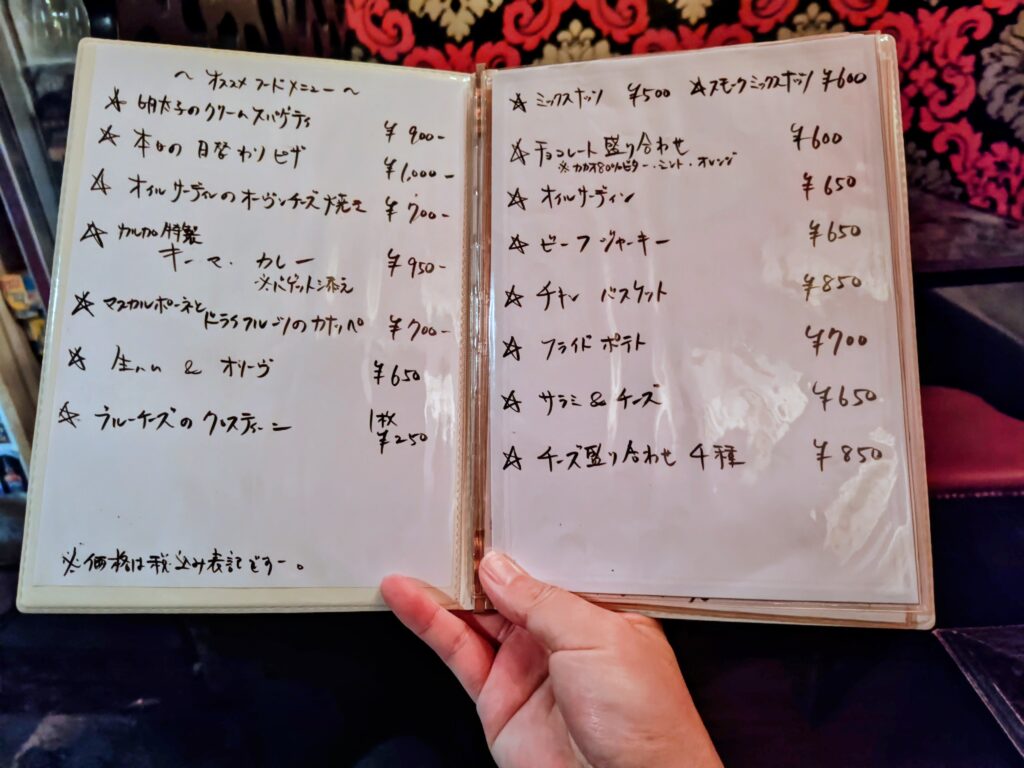 ～ オススメ フードメニュー ～
☆ 明太子のクリームスパゲティ ¥900-
☆ 本日の 日替わりピザ ¥1,000-
☆ オイルサーディンのオーヴンチーズ焼き ¥700-
☆ カルカル特製
キーマ・カレー ¥950-
※バゲット添え
☆ マスカルポーネと
ドライフルーツのカナッペ ¥700-
☆ 生ハム & オリーヴ ¥650
☆ ブルーチーズの クロスティーニ 1枚
¥250
※価格は税込み表記ですー。
☆ ミックスナッツ ¥500 ☆スモークミックスナッツ ¥600
☆ チョコレート盛り合わせ ¥600
※カカオ80%ビター・ミント・オレンジ
☆ オイルサーディン ¥650
☆ ビーフジャーキー ¥650
☆ チキン バスケット ¥850
☆ フライドポテト ¥700
☆ サラミ&チーズ ¥650
☆ チーズ盛り合わせ 4種 ¥850